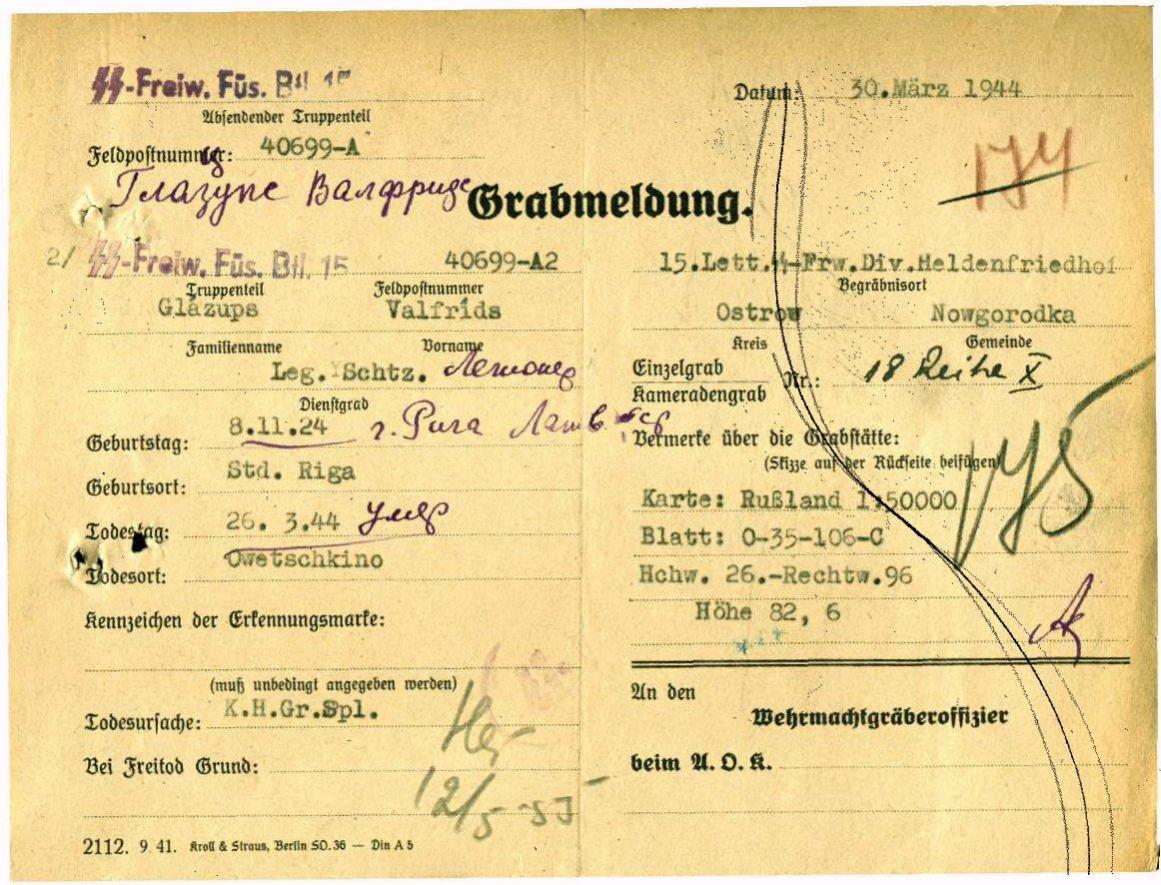 ᛋᛋ-Freiw. Füs. Btl. 15
Absendender Truppenteil
Feldpostnummer: 40699-A
Глазупс Валфридс
Grabmeldung.
2/ ᛋᛋ-Freiw. Füs. Btl. 15 40699-A2
Truppenteil Feldpostnummer
Glazups Valfrids
Familienname Vorname
Leg. Schtz.
Dienstgrad
Geburtstag: 8.11.24 г. Рига Латв. сср
Geburtsort: Std. Riga
Todestag: 26. 3.44 умер
Todesort: Owetschkino
Kennzeichen der Erkennungsmarke:
(muß unbedingt angegeben werden)
Todesursache: K.H.Gr.Spl.
Bei Freitod Grund:
12/5 53
2112. 9 41. Kroll & Straus, Berlin SO.36 — Din A 5
Datum: 30.März 1944
174
15.Lett.ᛋᛋ-Frw.Div.Heldenfriedhof
Begräbnisort
Ostrow Nowgorodka
Kreis Gemeinde
Einzelgrab
Kameradengrab Nr.: 18 Reihe X
Vermerke über die Grabstätte:
(Skizze auf der Rückseite beifügen)
Karte: Rußland 1:50000
Blatt: O-35-106-C
Hchw. 26.-Rechtw.96
Höhe 82, 6
An den
Wehrmachtgräberoffizier
beim A. O. K.